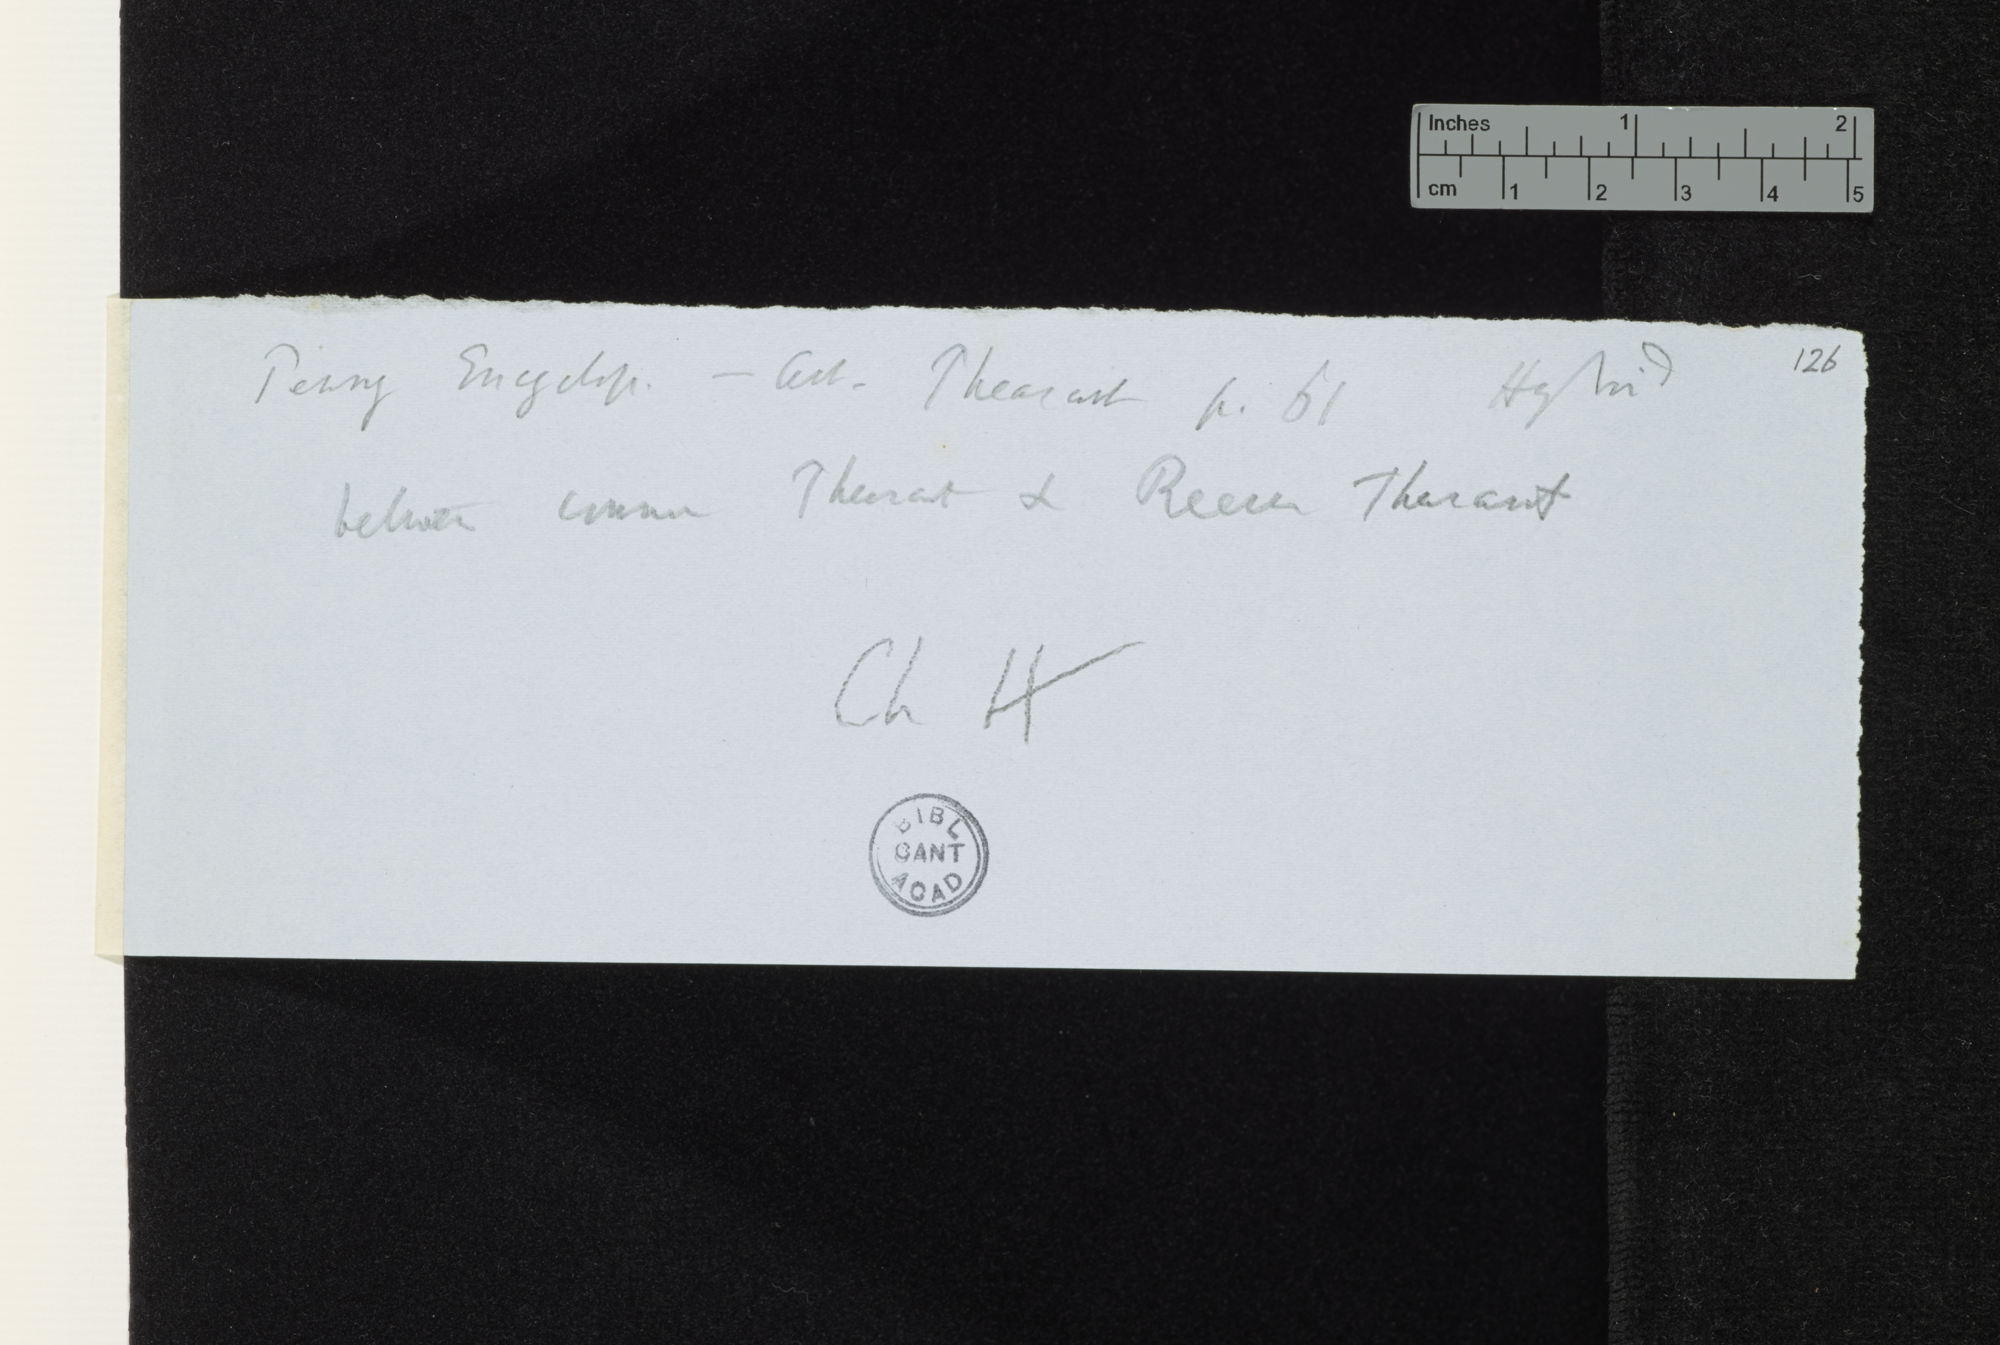 Inches 1 2
cm 1 2 3 4 5
126
Penny Encyclop. — Art. Pheasant p. 61 Hybrid
between common Pheasant & Reeves Pheasant
Ch
BIBL
CANT
ACAD